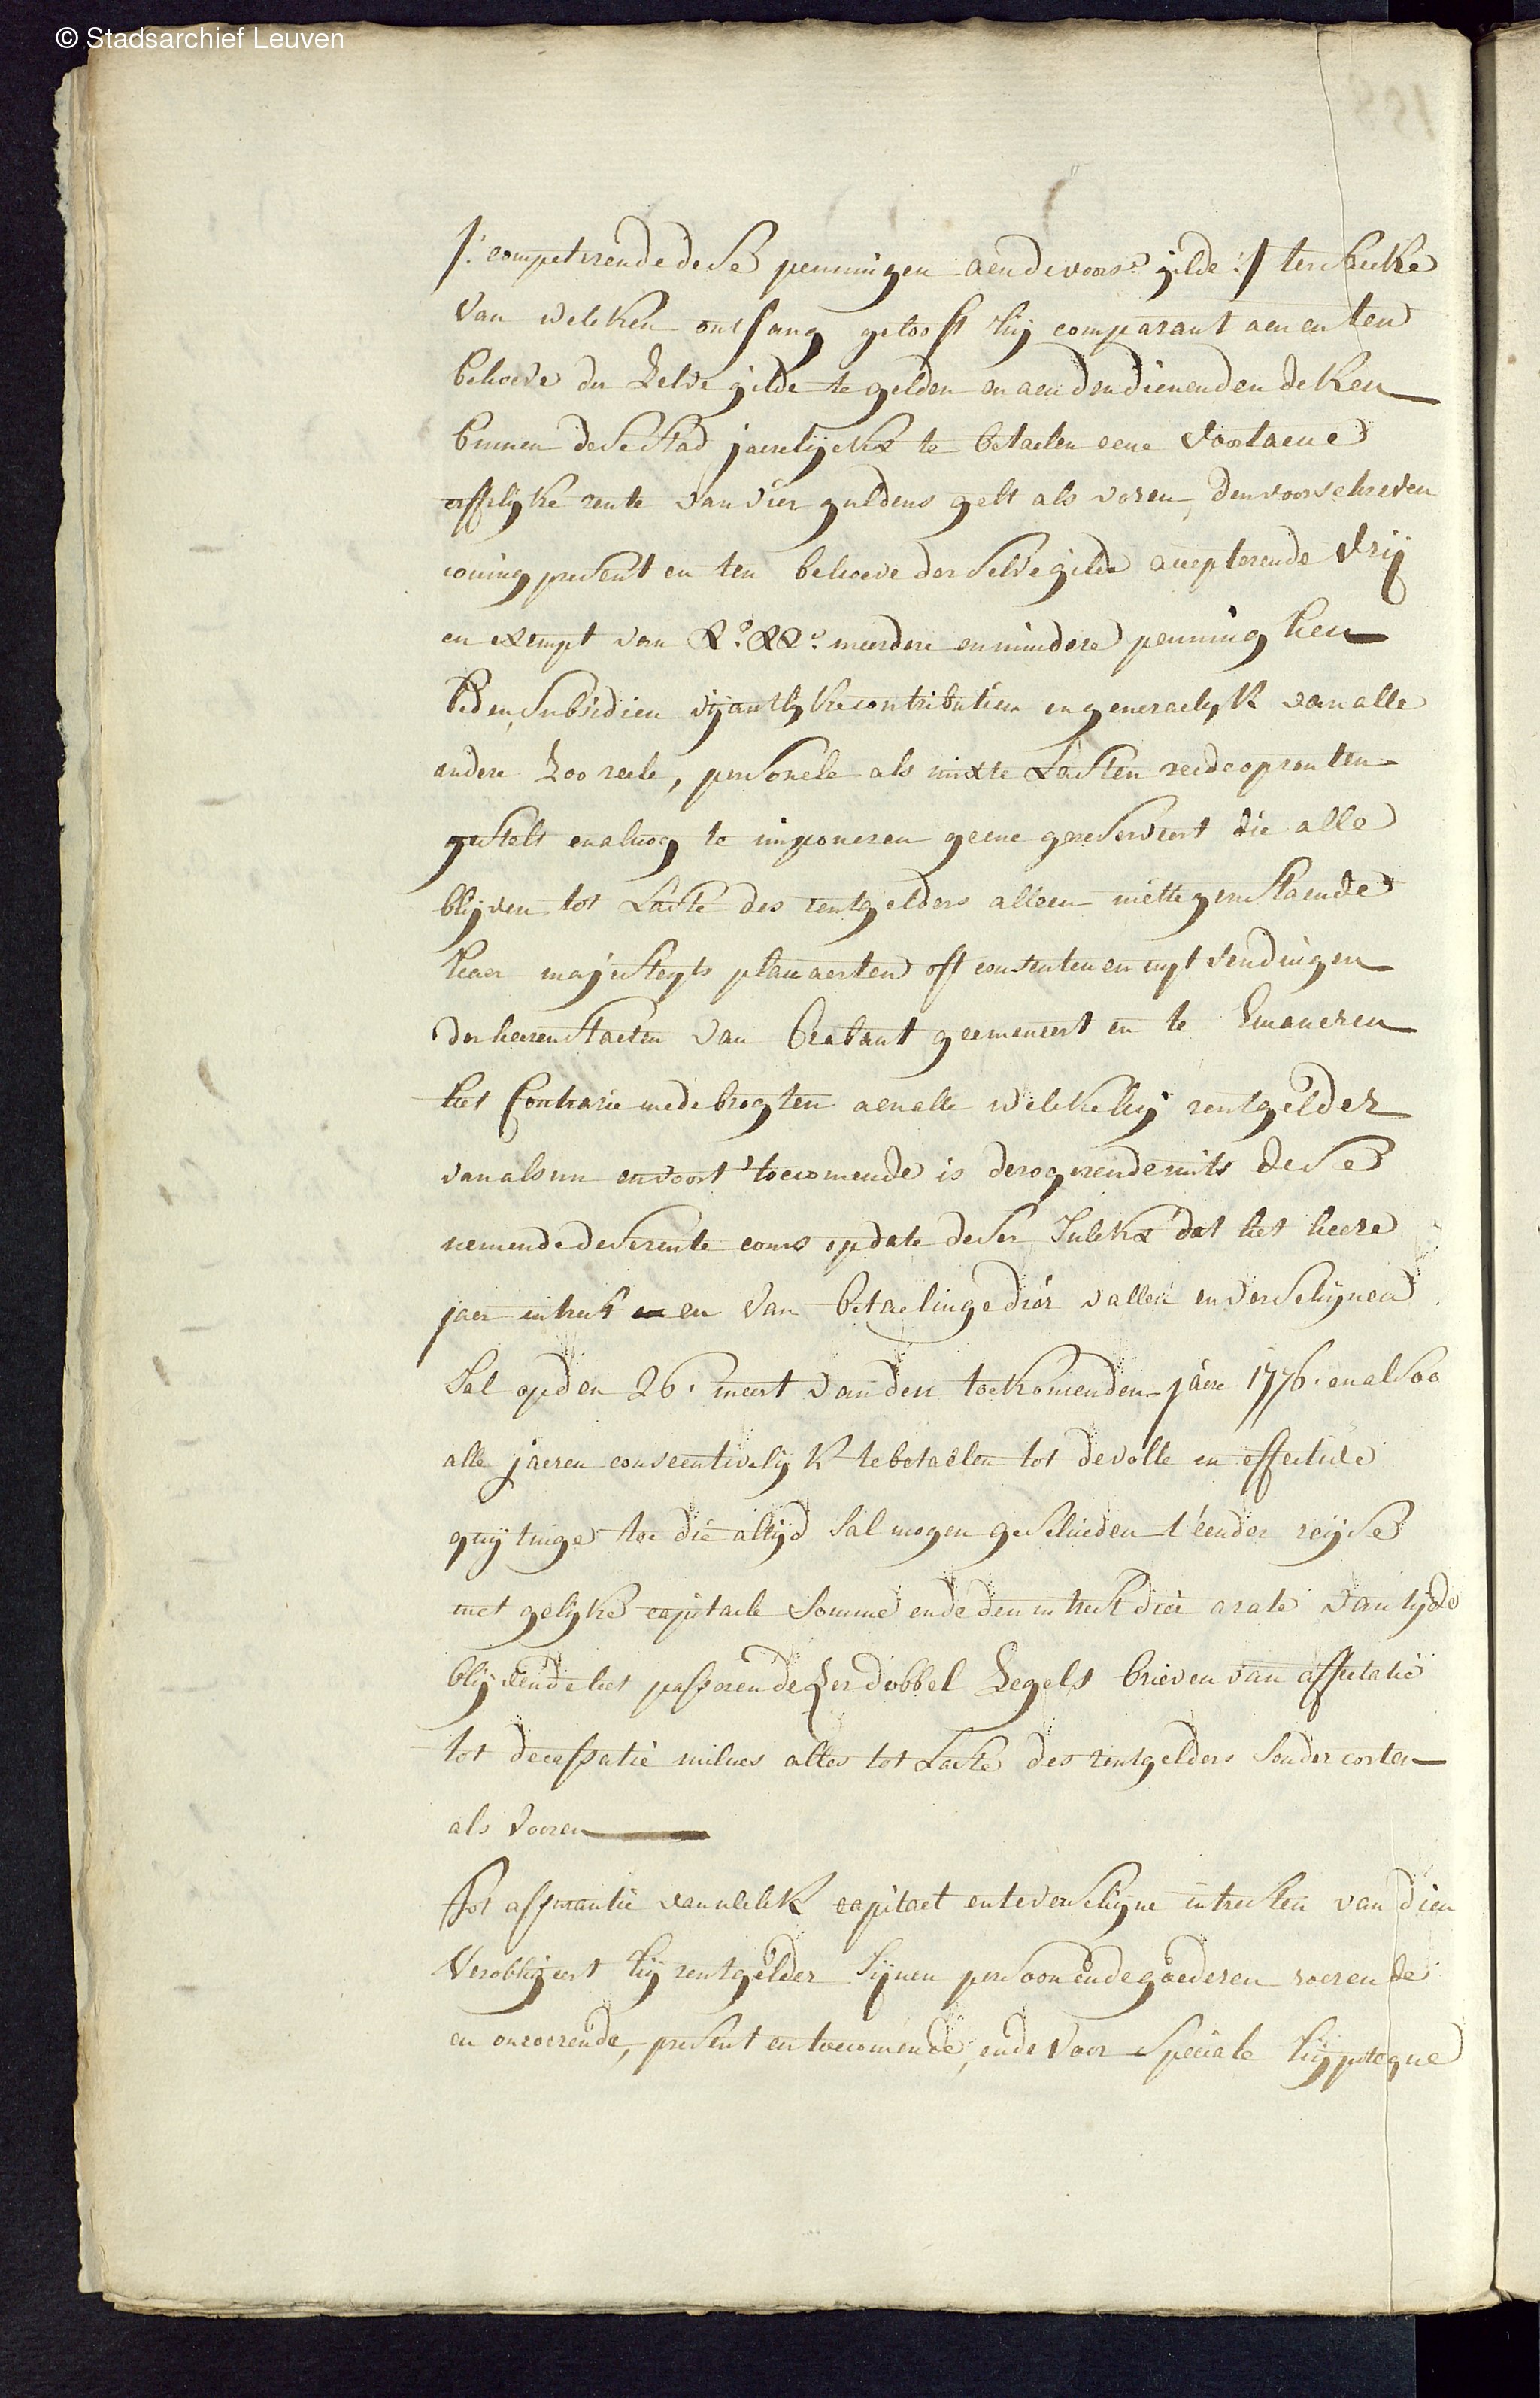 © Stadsarchief Leuven
/: competerende dese penningen aen de voors.e gilde :/ ter saeke
van welcken ontfang geloeft hij comparant aen en ten
behoeve der zelve gilde te gelden en aen den dienenden deken
binnen dese stad jaerelijckx te betaelen eene voortaene
erffelijke rente van vier guldens gelt als voren, den voorschreven
coning present en ten behoeve der selve gilde accepterende vrij
en exempt van X.e XX.e meerdere en mindere penninghen
beden, subsidien vijantlijke contributien en generaelijk van alle
andere zoo reele, personele als mixte lasten reede op renten
gestelt en alnog te imponeren geene gereserveert die alle
blijven tot laste des rentgelders alleen niettegenstaende
haer majesteyts placcaerten oft consenten en uyt sendingen
der heeren staeten van brabant geemaneert en te emaneren
het contrarie medebrogten aen alle welcke hij rentgelder
van als nu en voort toecomende is derogerende mits dese
nemende dese rente cours op date deser sulckx dat het heere
jaer intrest en van betaelinge dier vallen en verschijnen
sal op den 26. meert van den toekomenden jaere 1776. en alsoo
alle jaeren consecutivelijk te betaelen tot de volle en effective
quytinge toe die altijd sal mogen geschieden t'eender reijse
met gelijke capitaele somme ende den intrest dier a rato van tijde
blijvende het passeren dezer dobbel zegels brieven van affectatie
tot decessatie incluis alles tot laste des rentgelders sonder corten
als voren
Tot assurantie van welck capitael en te verschijne intresten van dien
verobligeert hij rentgelder sijnen persoon ende goederen roerende
en onroerende, present en toecomende, ende voor speciale hijpoteque